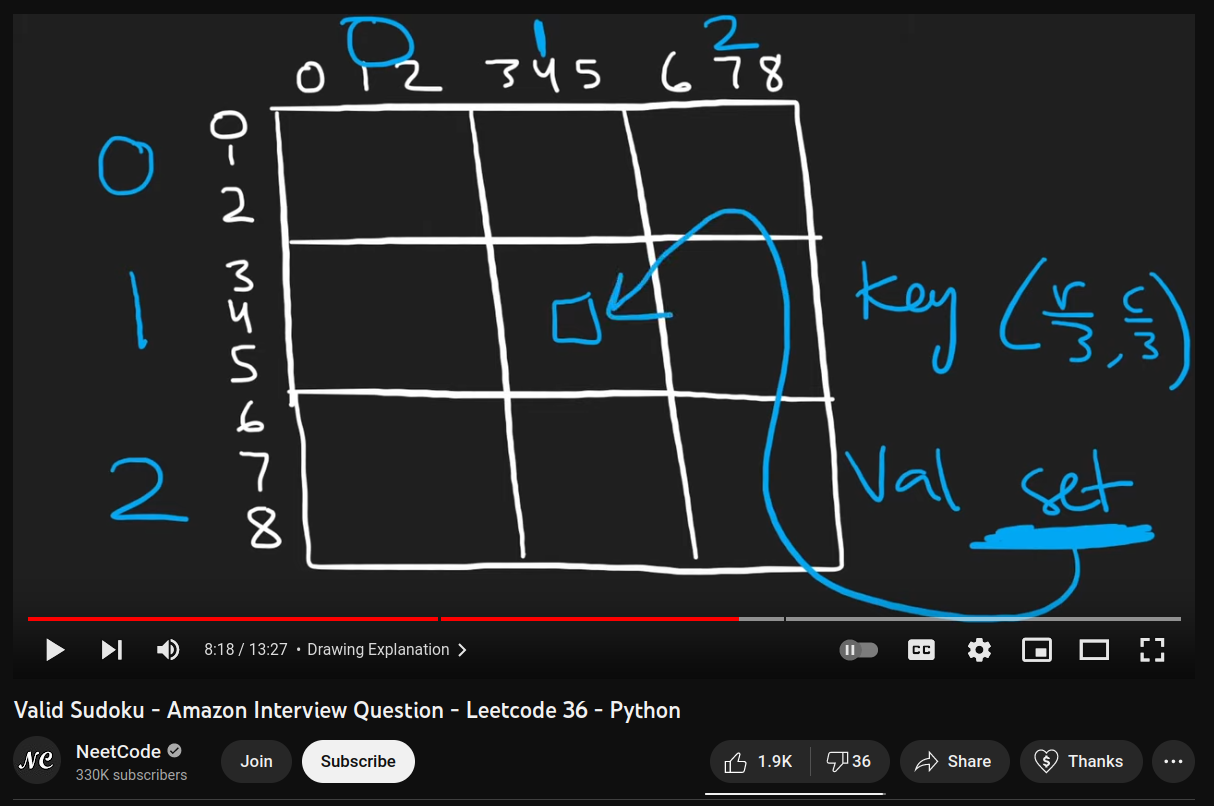 0 1 2
0 1 2 3 4 5 6 7 8
0
1
2
3
4
5
6
7
8
0
1
2
Key (r/3, c/3)
Val set
8:18 / 13:27 • Drawing Explanation
CC
Valid Sudoku - Amazon Interview Question - Leetcode 36 - Python
NC
NeetCode
330K subscribers
Join
Subscribe
1.9K
36
Share
$
Thanks